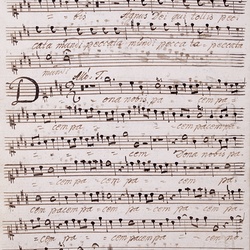 Agnus Dei qui tollis pec-
cata mundi peccata mundi peccata
mundi
Allo. T.
Dona nobis pa cem pa
cem pa cem pacem pa
cem Dona nobis pa
cem pa cem pa cem pa
cem pacem pa cem pa
cem pa cem pa